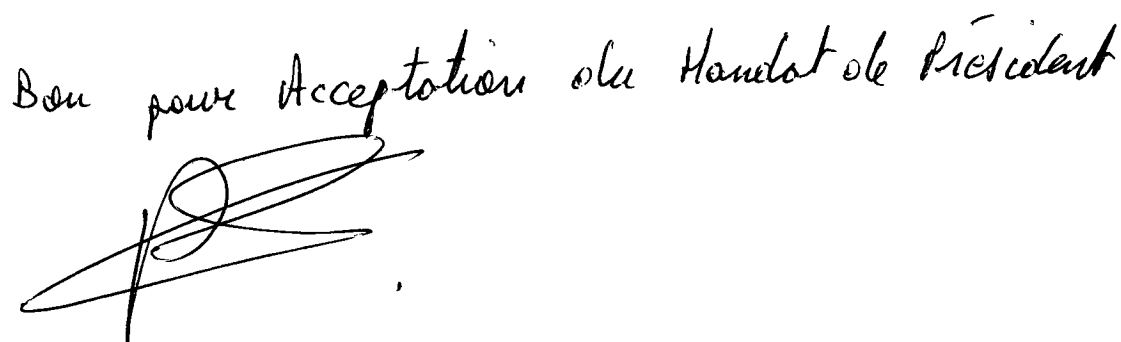 Bon pour Acceptation du Mandat de Président